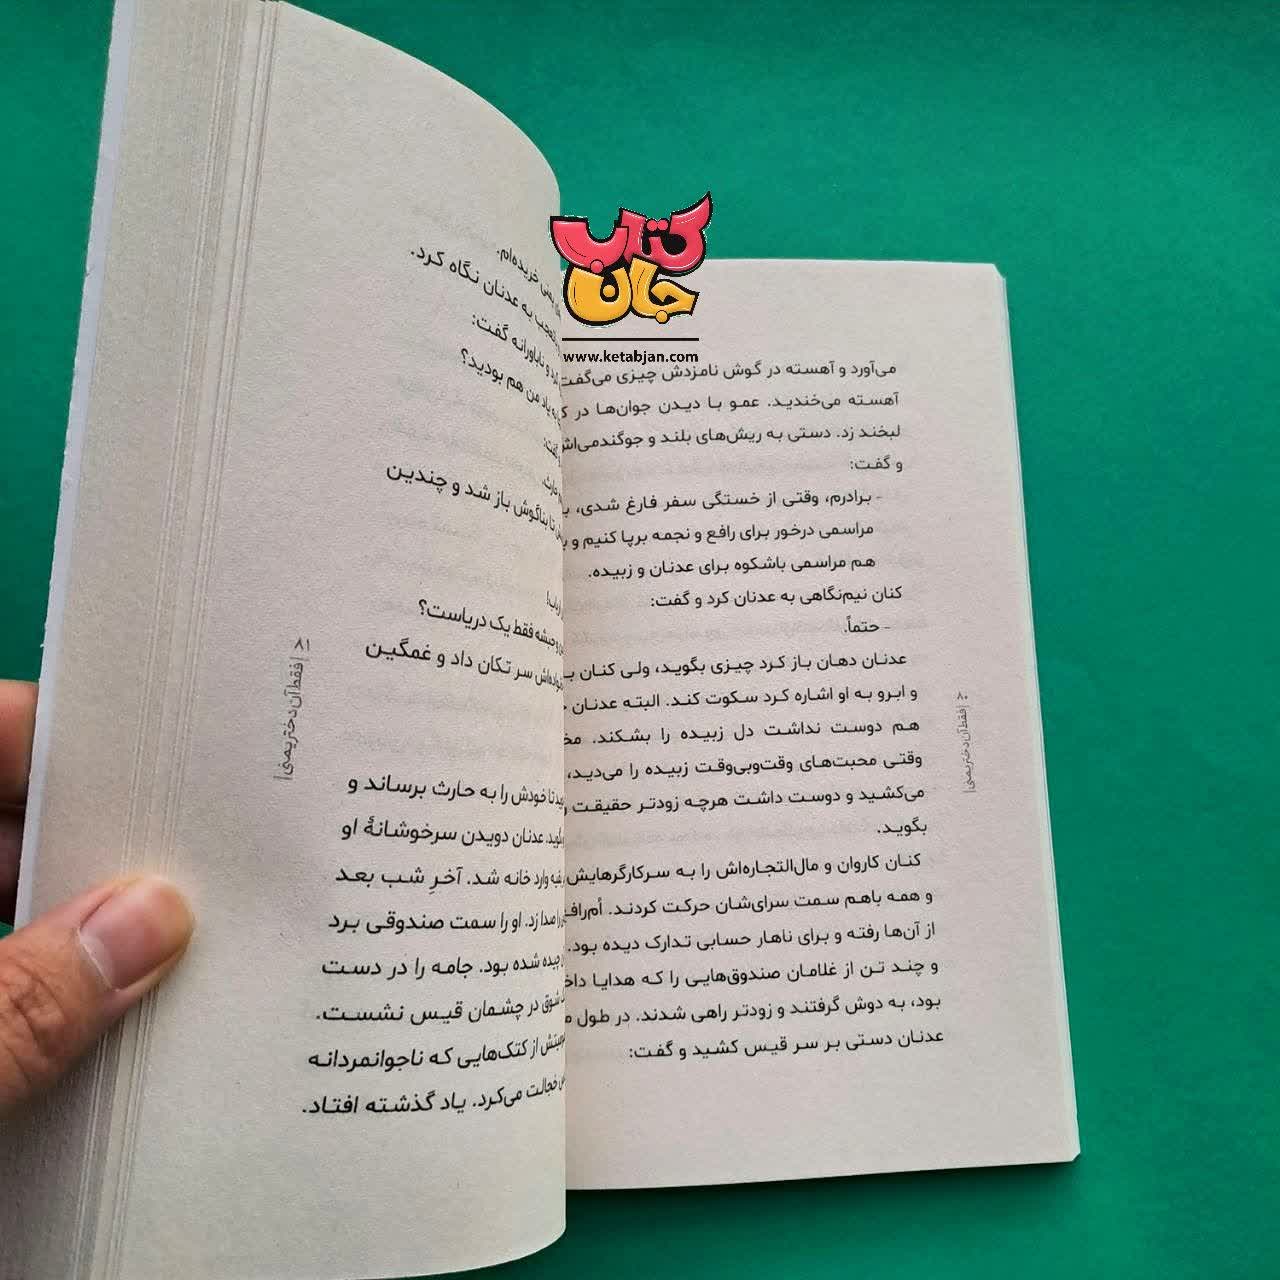 کتاب
جان
www.ketabjan.com
می‌آورد و آهسته در گوش نامزدش چیزی می‌گفت
آهسته می‌خندید. عمو با دیدن جوان‌ها در
لبخند زد. دستی به ریش‌های بلند و جوگندمی‌اش
و گفت:
- برادرم، وقتی از خستگی سفر فارغ شدی،
مراسمی درخور برای رافع و نجمه برپا کنیم و
هم مراسمی باشکوه برای عدنان و زبیده.
کنان نیم‌نگاهی به عدنان کرد و گفت:
- حتماً.
عدنان دهان باز کرد چیزی بگوید، ولی کنان
و ابرو به او اشاره کرد سکوت کند. البته عدنان
هم دوست نداشت دل زبیده را بشکند.
وقتی محبت‌های وقت‌وبی‌وقت زبیده را می‌دید،
می‌کشید و دوست داشت هرچه زودتر حقیقت
بگوید.
کنان کاروان و مال‌التجاره‌اش را به سرکارگرهایش
و همه باهم سمت سرای‌شان حرکت کردند.
از آن‌ها رفته و برای ناهار حسابی تدارک دیده بود.
و چند تن از غلامان صندوق‌هایی را که هدایا
بود، به دوش گرفتند و زودتر راهی شدند. در طول
عدنان دستی بر سر قیس کشید و گفت:
۸۰ | فقط آن دختر یمنی |
یمنی خریده‌ام.
به عدنان نگاه کرد.
و ناباورانه گفت:
به یاد من هم بودید؟
گفت:
حارث.
تا بناگوش باز شد و چندین
ارباب!
وحبشه فقط یک دریاست؟
سر تکان داد و غمگین
تا خودش را به حارث برساند و
بگوید. عدنان دویدن سرخوشانهٔ او
وارد خانه شد. آخرِ شب بعد
را صدا زد. او را سمت صندوقی برد
چیده شده بود. جامه را در دست
شوق در چشمان قیس نشست.
از کتک‌هایی که ناجوانمردانه
خجالت می‌کرد. یاد گذشته افتاد.
۸۱ | فقط آن دختر یمنی |